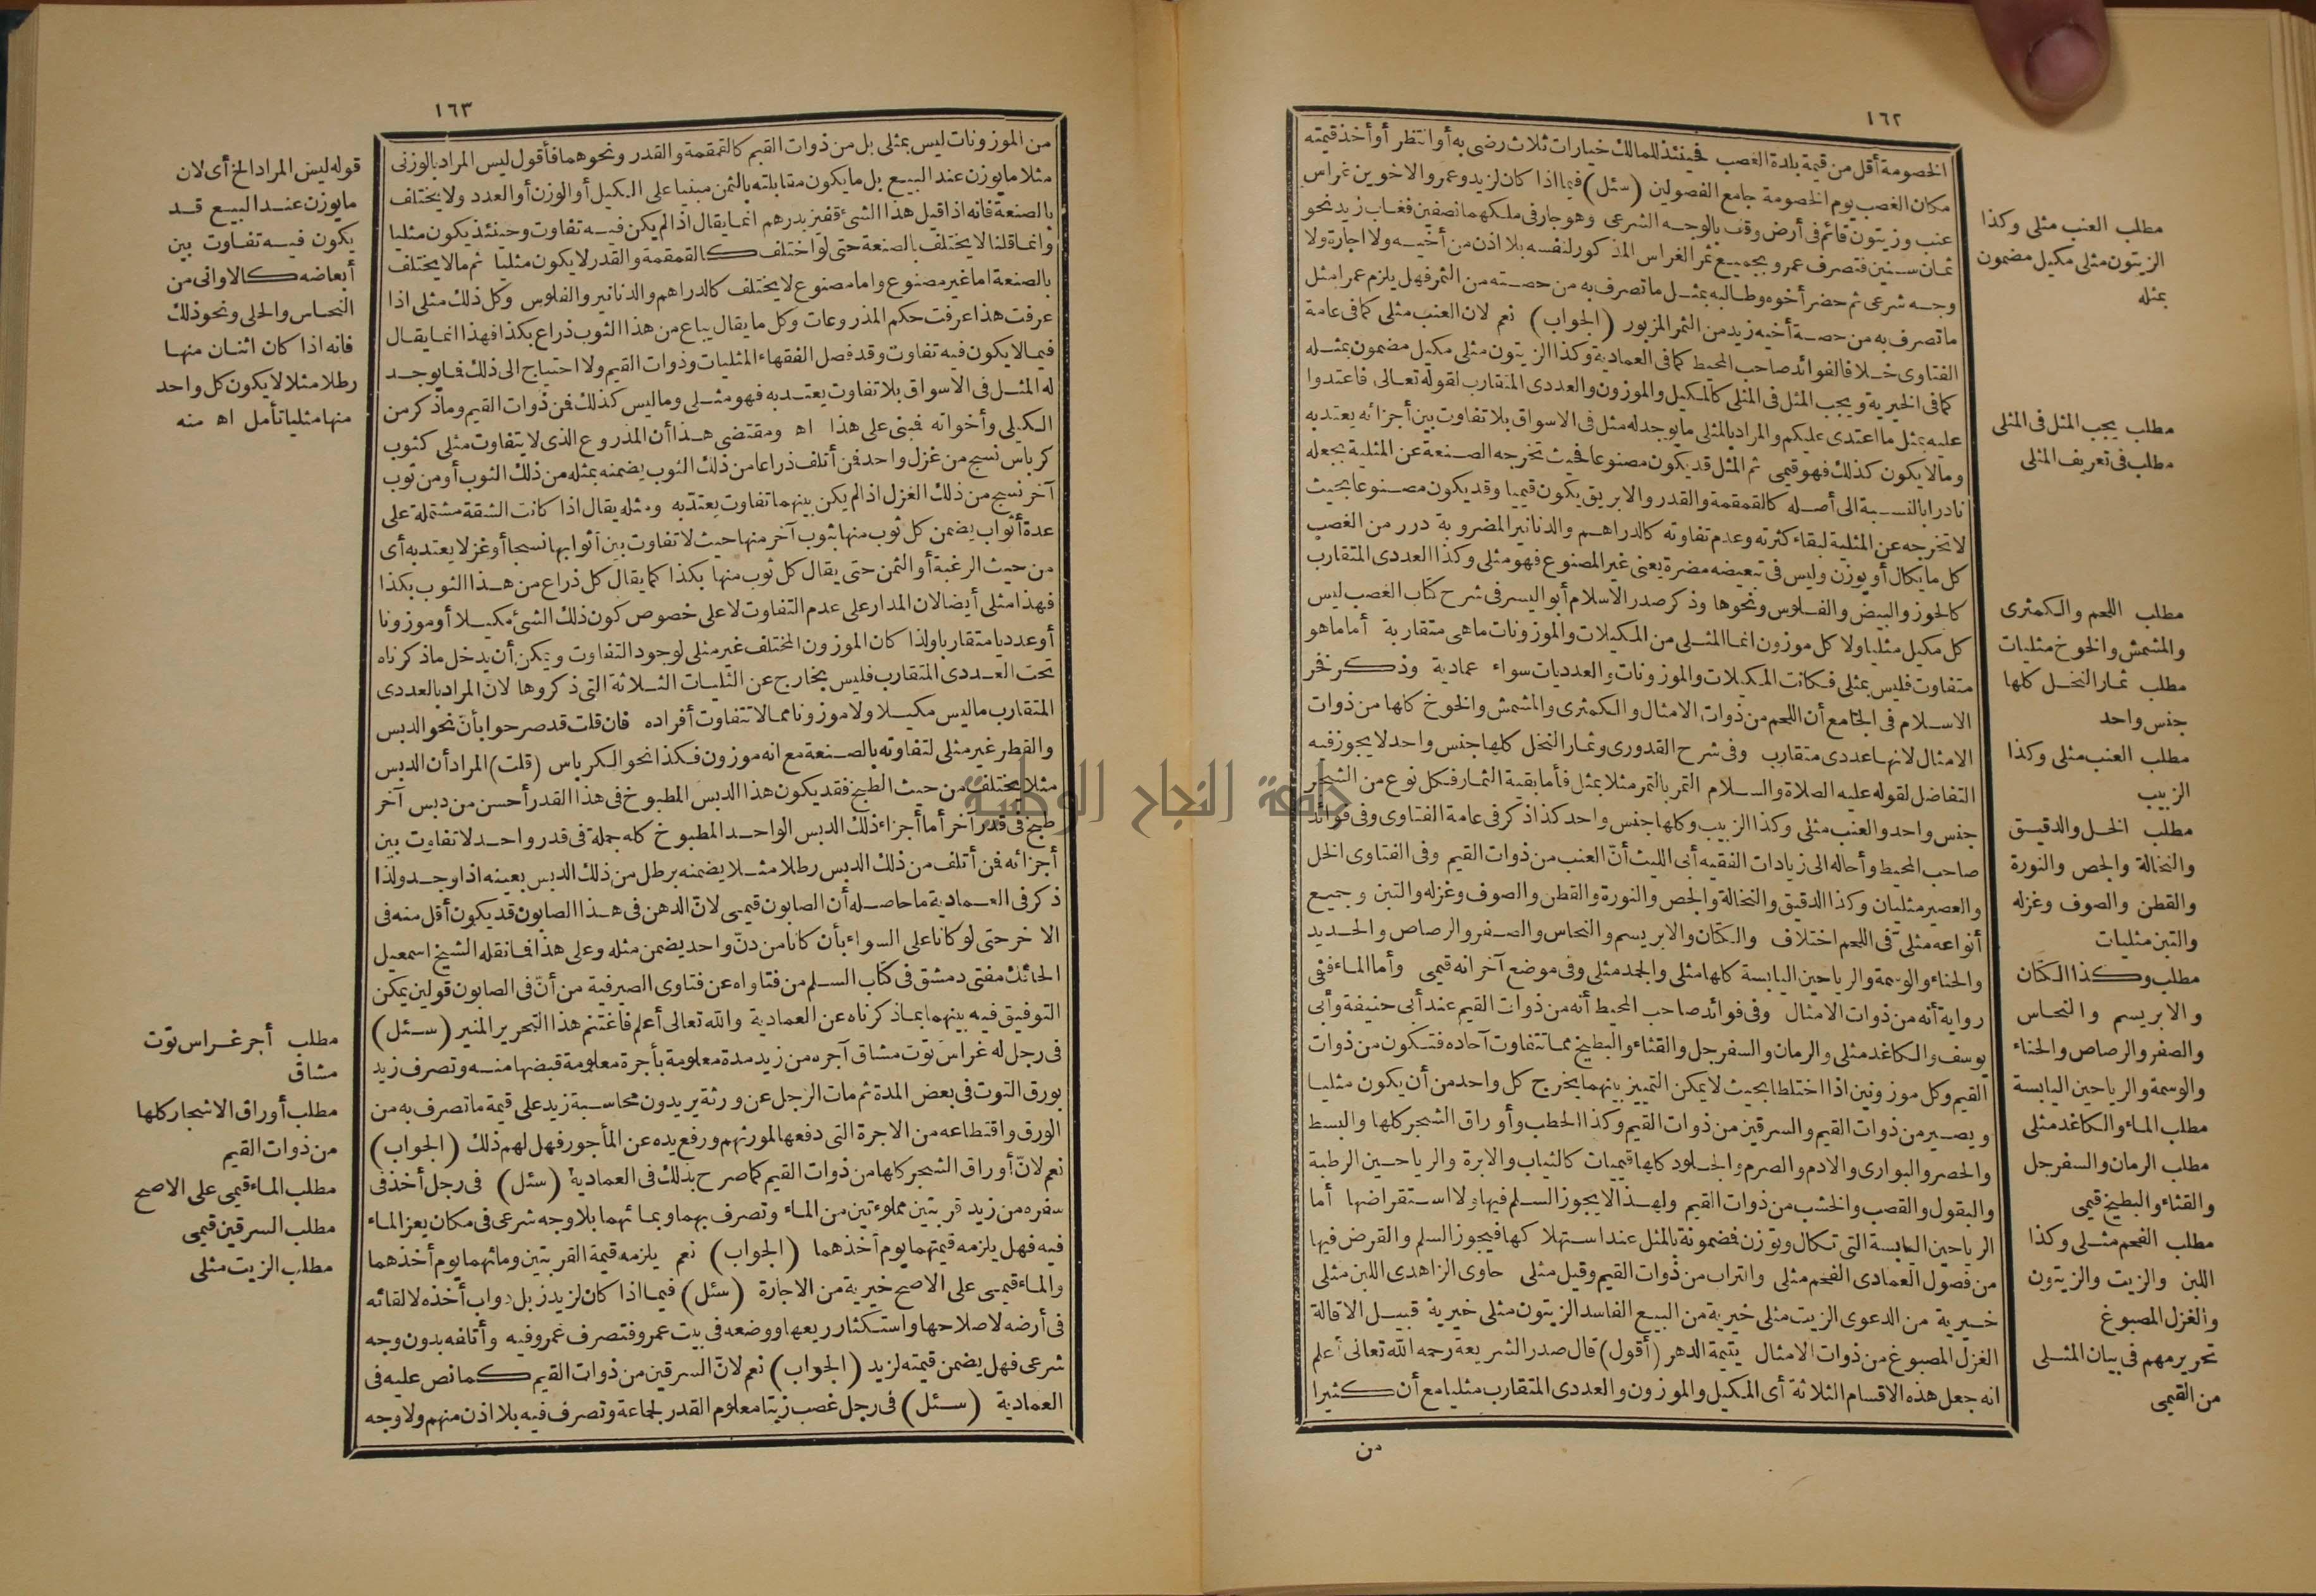 ١٦٢
الخصومة أقل من قيمة بلدة الغصب فحينئذ للمالك خيارات ثلاث رضى به أو انتظر أو أخذ قيمته
مكان الغصب يوم الخصومة جامع الفصولين (سئل) فيما اذا كان لزيد وعمرو الاخوين غراس
عنب وزيتون قائم فى أرض وقف بالوجه الشرعى وهو جار فى ملكهما نصفين فغاب زيد نحو
ثمان سنين فتصرف عمرو بجميع ثمر الغراس المذكور لنفسه بلا اذن من أخيه ولا اجارة ولا
وجه شرعى ثم حضر أخوه وطالبه بمثل ما تصرف به من حصته من الثمر فهل يلزم عمرا مثل
ما تصرف به من حصة أخيه زيد من الثمر المزبور (الجواب) نعم لان العنب مثلى كما فى عامة
الفتاوى خلافا لفوائد صاحب المحيط كما فى العمادية وكذا الزيتون مثلى مكيل مضمون بمثله
كما فى الخيرية ويجب المثل فى المثلى كالمكيل والموزون والعددى المتقارب لقوله تعالى فاعتدوا
عليه بمثل ما اعتدى عليكم والمراد بالمثلى ما يوجد له مثل فى الاسواق بلا تفاوت بين أجزائه يعتد به
وما لا يكون كذلك فهو قيمى ثم المثل قد يكون مصنوعا فحيث تخرجه الصنعة عن المثلية بجعله
نادرا بالنسبة الى أصله كالقمقمة والقدر والابريق يكون قيميا وقد يكون مصنوعا بحيث
لا تخرجه عن المثلية لبقاء كثرته وعدم تفاوته كالدراهم والدنانير المضروبة درر من الغصب
كل ما يكال أو يوزن وليس فى تبعيضه مضرة يعنى غير المصنوع فهو مثلى وكذا العددى المتقارب
كالجوز والبيض والفلوس ونحوها وذكر صدر الاسلام أبو اليسر فى شرح كتاب الغصب ليس
كل مكيل مثليا ولا كل موزون انما المثلى من المكيلات والموزونات ما هى متقاربة أما ما هو
متفاوت فليس بمثلى فكانت المكيلات والموزونات والعدديات سواء عمادية وذكر فخر
الاسلام فى الجامع أن اللحم من ذوات الامثال والكمثرى والمشمش والخوخ كلها من ذوات
الامثال لانها عددى متقارب وفى شرح القدورى وثمار النخل كلها جنس واحد لا يجوز فيه
التفاضل لقوله عليه الصلاة والسلام التمر بالتمر مثلا بمثل فأما بقية الثمار فكل نوع من الشجر
جنس واحد والعنب مثلى وكذا الزبيب وكلها جنس واحد كذا ذكر فى عامة الفتاوى وفى فوائد
صاحب المحيط وأحاله الى زيادات الفقيه أبى الليث أنّ العنب من ذوات القيم وفى الفتاوى الخل
والعصير مثليان وكذا الدقيق والنخالة والجص والنورة والقطن والصوف وغزله والتبن وجميع
أنواعه مثلىّ فى اللحم اختلاف والكتان والابريسم والنحاس والصفر والرصاص والحديد
والحناء والوسمة والرياحين اليابسة كلها مثلى والجمد مثلى وفى موضع آخر انه قيمى وأما الماء ففى
رواية أنه من ذوات الامثال وفى فوائد صاحب المحيط أنه من ذوات القيم عند أبى حنيفة وأبى
يوسف والكاغد مثلى والرمان والسفرجل والقثاء والبطيخ مما تتفاوت آحاده فتكون من ذوات
القيم وكل موزونين اذا اختلطا بحيث لا يمكن التمييز بينهما يخرج كل واحد من أن يكون مثليا
ويصير من ذوات القيم والسرقين من ذوات القيم وكذا الحطب وأوراق الشجر كلها والبسط
والحصر والبوارى والادم والصرم والجلود كلها قيميات كالثياب والابرة والرياحين الرطبة
والبقول والقصب والخشب من ذوات القيم ولهذا لا يجوز السلم فيها ولا استقراضها أما
الرياحين اليابسة التى تكال وتوزن فضمونة بالمثل عند استهلاكها فيجوز السلم والقرض فيها
من فصول العمادى الفحم مثلى والتراب من ذوات القيم وقيل مثلى حاوى الزاهدى اللبن مثلى
خيرية من الدعوى الزيت مثلى خيرية من البيع الفاسد الزيتون مثلى خيرية قبيل الاقالة
الغزل المصبوغ من ذوات الامثال يتيمة الدهر (أقول) قال صدر الشريعة رحمه الله تعالى أعلم
انه جعل هذه الاقسام الثلاثة أى المكيل والموزون والعددى المتقارب مثليا مع أن كثيرا
من
مطلب العنب مثلى وكذا
الزيتون مثلى مكيل مضمون
بمثله
مطلب يجب المثل فى المثلى
مطلب فى تعريف المثلى
مطلب اللحم والكمثرى
والمشمش والخوخ مثليات
مطلب ثمار النخل كلها
جنس واحد
مطلب العنب مثلى وكذا
الزبيب
مطلب الخل والدقيق
والنخالة والجص والنورة
والقطن والصوف وغزله
والتبن مثليات
مطلب وكذا الكتان
والابريسم والنحاس
والصفر والرصاص والحناء
والوسمة والرياحين اليابسة
مطلب الماء والكاغد مثلى
مطلب الرمان والسفرجل
والقثاء والبطيخ قيمى
مطلب الفحم مثلى وكذا
اللبن والزيت والزيتون
والغزل المصبوغ
تحرير مهم فى بيان المثلى
من القيمى
١٦٣
من الموزونات ليس بمثلى بل من ذوات القيم كالقمقمة والقدر ونحوهما فأقول ليس المراد بالوزنى
مثلا ما يوزن عند البيع بل ما يكون مقابلته بالثمن مبنيا على الكيل أو الوزن أو العدد ولا يختلف
بالصنعة فانه اذا قيل هذا الشئ قفيز بدرهم انما يقال اذا لم يكن فيه تفاوت وحينئذ يكون مثليا
وانما قلنا لا يختلف بالصنعة حتى لو اختلف كالقمقمة والقدر لا يكون مثليا ثم ما لا يختلف
بالصنعة اما غير مصنوع واما مصنوع لا يختلف كالدراهم والدنانير والفلوس وكل ذلك مثلى اذا
عرفت هذا عرفت حكم المذروعات وكل ما يقال يباع من هذا الثوب ذراع بكذا فهذا انما يقال
فيما لا يكون فيه تفاوت وقد فصل الفقهاء المثليات وذوات القيم ولا احتياج الى ذلك فما يوجد
له المثل فى الاسواق بلا تفاوت يعتد به فهو مثلى وما ليس كذلك فمن ذوات القيم وما ذكر من
الكيلى وأخواته فبنى على هذا اه ومقتضى هذا أن المذروع الذى لا يتفاوت مثلى كثوب
كرباس نسج من غزل واحد فمن أتلف ذراعا من ذلك الثوب يضمنه بمثله من ذلك الثوب أو من ثوب
آخر نسج من ذلك الغزل اذ لم يكن بينهما تفاوت يعتد به ومثله يقال اذا كانت الشقة مشتملة على
عدة أثواب يضمن كل ثوب منها بثوب آخر منها حيث لا تفاوت بين أثوابها نسجا أو غزلا يعتد به أى
من حيث الرغبة أو الثمن حتى يقال كل ثوب منها بكذا كما يقال كل ذراع من هذا الثوب بكذا
فهذا مثلى أيضا لان المدار على عدم التفاوت لا على خصوص كون ذلك الشئ مكيلا أو موزونا
أو عدديا متقاربا ولذا كان الموزون المختلف غير مثلى لوجود التفاوت ويمكن أن يدخل ما ذكرناه
تحت العددى المتقارب فليس بخارج عن الثليات الثلاثة التى ذكروها لان المراد بالعددى
المتقارب ما ليس مكيلا ولا موزونا مما لا تتفاوت أفراده فان قلت قد صرحوا بأن نحو الدبس
والقطر غير مثلى لتفاوته بالصنعة مع انه موزون فكذا نحو الكرباس (قلت) المراد أن الدبس
مثلا يختلف من حيث الطبخ فقد يكون هذا الدبس المطبوخ فى هذا القدر أحسن من دبس آخر
طبخ فى قدر آخر أما أجزاء ذلك الدبس الواحد المطبوخ كله جملة فى قدر واحد لا تفاوت بين
أجزائه فمن أتلف من ذلك الدبس رطلا مثلا يضمنه برطل من ذلك الدبس بعينه اذا وجد ولذا
ذكر فى العمادية ما حاصله أن الصابون قيمى لانّ الدهن فى هذا الصابون قد يكون أقل منه فى
الآخر حتى لو كانا على السواء بأن كانا من دنّ واحد يضمن مثله وعلى هذا فما نقله الشيخ اسمعيل
الحائك مفتى دمشق فى كتاب السلم من فتاواه عن فتاوى الصيرفية من أنّ فى الصابون قولين يمكن
التوفيق فيه بينهما بما ذكرناه عن العمادية والله تعالى أعلم فاغتنم هذا التحرير المنير (سئل)
فى رجل له غراس توت مشاق آجره من زيد مدة معلومة بأجرة معلومة قبضها منه وتصرف زيد
بورق التوت فى بعض المدة ثم مات الرجل عن ورثة يريدون محاسبة زيد على قيمة ما تصرف به من
الورق واقتطاعه من الاجرة التى دفعها لمورثهم ورفع يده عن المأجور فهل لهم ذلك (الجواب)
نعم لانّ أوراق الشجر كلها من ذوات القيم كما صرح بذلك فى العمادية (سئل) فى رجل أخذ فى
سفره من زيد قربتين مملوءتين من الماء وتصرف بهما وبمائهما بلا وجه شرعى فى مكان يعز الماء
فيه فهل يلزمه قيمتهما يوم أخذهما (الجواب) نعم يلزمه قيمة القربتين ومائهما يوم أخذهما
والماء قيمى على الاصح خيرية من الاجارة (سئل) فيما اذا كان لزيد زبل دواب أخذه لالقائه
فى أرضه لاصلاحها واستكثار ريعها ووضعه فى بيت عمرو فتصرف عمرو فيه وأتلفه بدون وجه
شرعى فهل يضمن قيمته لزيد (الجواب) نعم لانّ السرقين من ذوات القيم كما نص عليه فى
العمادية (سئل) فى رجل غصب زيتا معلوم القدر لجماعة وتصرف فيه بلا اذن منهم ولا وجه
قوله ليس المراد الخ أى لان
ما يوزن عند البيع قد
يكون فيه تفاوت بين
أبعاضه كالاوانى من
النحاس والحلى ونحو ذلك
فانه اذا كان اثنان منها
رطلا مثلا لا يكون كل واحد
منها مثليا تأمل اه منه
مطلب أجر غراس توت
مشاق
مطلب أوراق الاشجار كلها
من ذوات القيم
مطلب الماء قيمى على الاصح
مطلب السرقين قيمى
مطلب الزيت مثلى
جامعة النجاح الوطنية